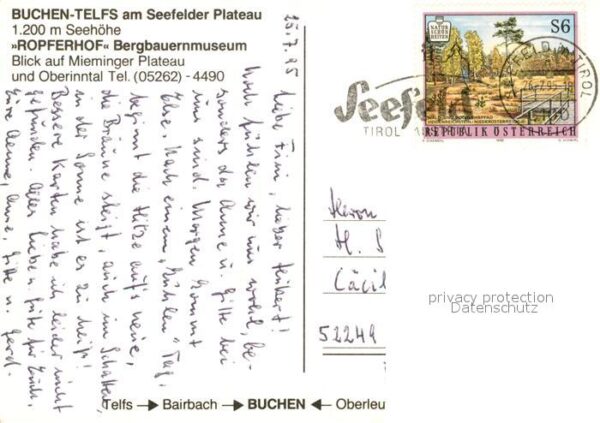 BUCHEN-TELFS am Seefelder Plateau
1.200 m Seehöhe
»ROPFERHOF« Bergbauernmuseum
Blick auf Mieminger Plateau
und Oberinntal Tel. (05262) - 4490
25.7.95
Liebe Fini, lieber Heribert!
Noch fühlen wir uns wohl, be-
sonders da Anne u. Gitte bei
uns sind. Morgen kommt
Else. Nach einem „kühlen" Tag,
beginnt die Hitze aufs neue,
die Bräune steigt, auch im Schatten,
in der Sonne ist es zu heiß!
Bessere Karten habe ich leider nicht
gefunden. Alles Liebe u. Gute für Euch,
Eure Anne, Gitte u. Gerd.
NATUR
SCHÖN
HEITEN
S6
REPUBLIK ÖSTERREICH
Seefeld
TIROL
SEEFELD TIROL
Herrn
H. S
Cäcil
52249
privacy protection
Datenschutz
Telfs → Bairbach → BUCHEN ← Oberleu